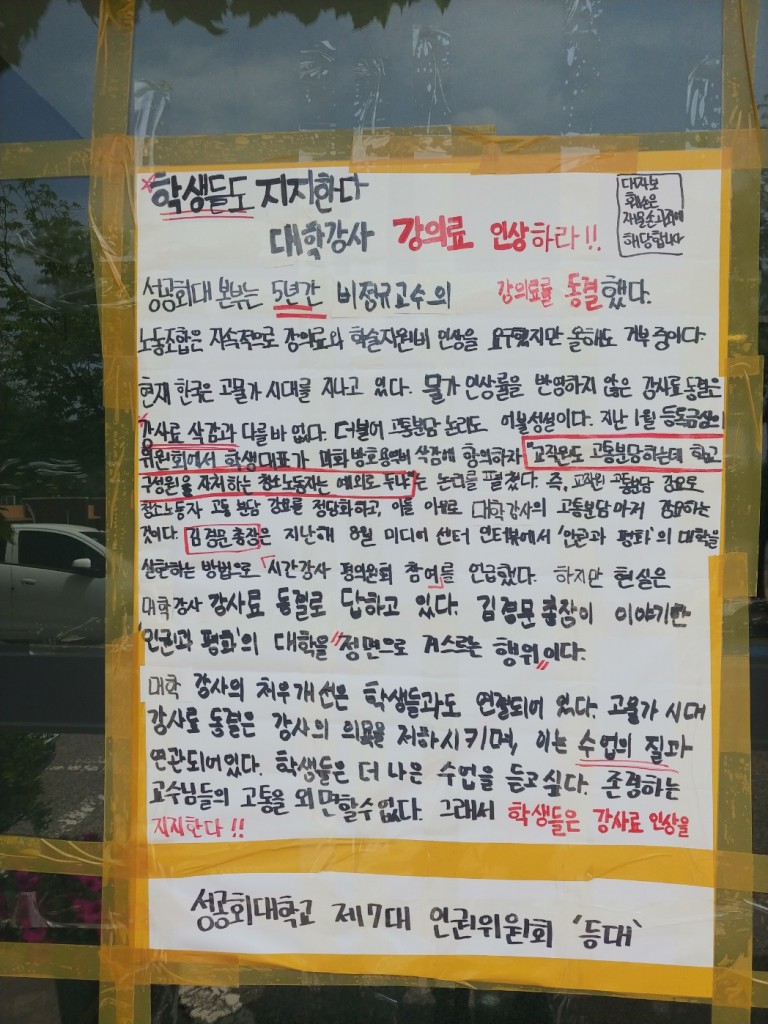 *학생들도 지지한다
대학강사 강의료 인상하라!!
대자보
훼손은
재물손괴죄에
해당합니다
성공회대 본부는 5년간 비정규교수의 강의료를 동결했다.
노동조합은 지속적으로 강의료와 학술지원비 인상을 요구했지만 올해도 거부 중이다.
현재 한국은 고물가 시대를 지나고 있다. 물가 인상률을 반영하지 않은 강사료 동결은
강사료 삭감과 다를 바 없다. 더불어 고통분담 논리도 어불성설이다. 지난 1월 등록금심의
위원회에서 학생대표가 미화 방호용역비 삭감에 항의하자 "교직원도 고통분담하는데 학교
구성원을 자처하는 청소노동자는 예외로 두냐"는 논리를 펼쳤다. 즉, 교직원 고통분담 강요로
청소노동자 고통 분담 강요를 정당화하고, 이를 이유로 대학강사의 고통분담마저 강요하는
것이다. 김경문 총장은 지난해 8월 미디어 센터 인터뷰에서 '인권과 평화'의 대학을
실현하는 방법으로 「시간강사 평의원회 참여」를 언급했다. 하지만 현실은
대학강사 강사료 동결로 답하고 있다. 김경문 총장이 이야기한
'인권과 평화'의 대학을 "정면으로 거스르는 행위"이다.
대학 강사의 처우개선은 학생들과도 연결되어 있다. 고물가 시대
강사료 동결은 강사의 의욕을 저하시키며, 이는 수업의 질과
연관되어있다. 학생들은 더 나은 수업을 듣고싶다. 존경하는
교수님들의 고통을 외면할수없다. 그래서 학생들은 강사료 인상을
지지한다!!
성공회대학교 제7대 인권위원회 '등대'